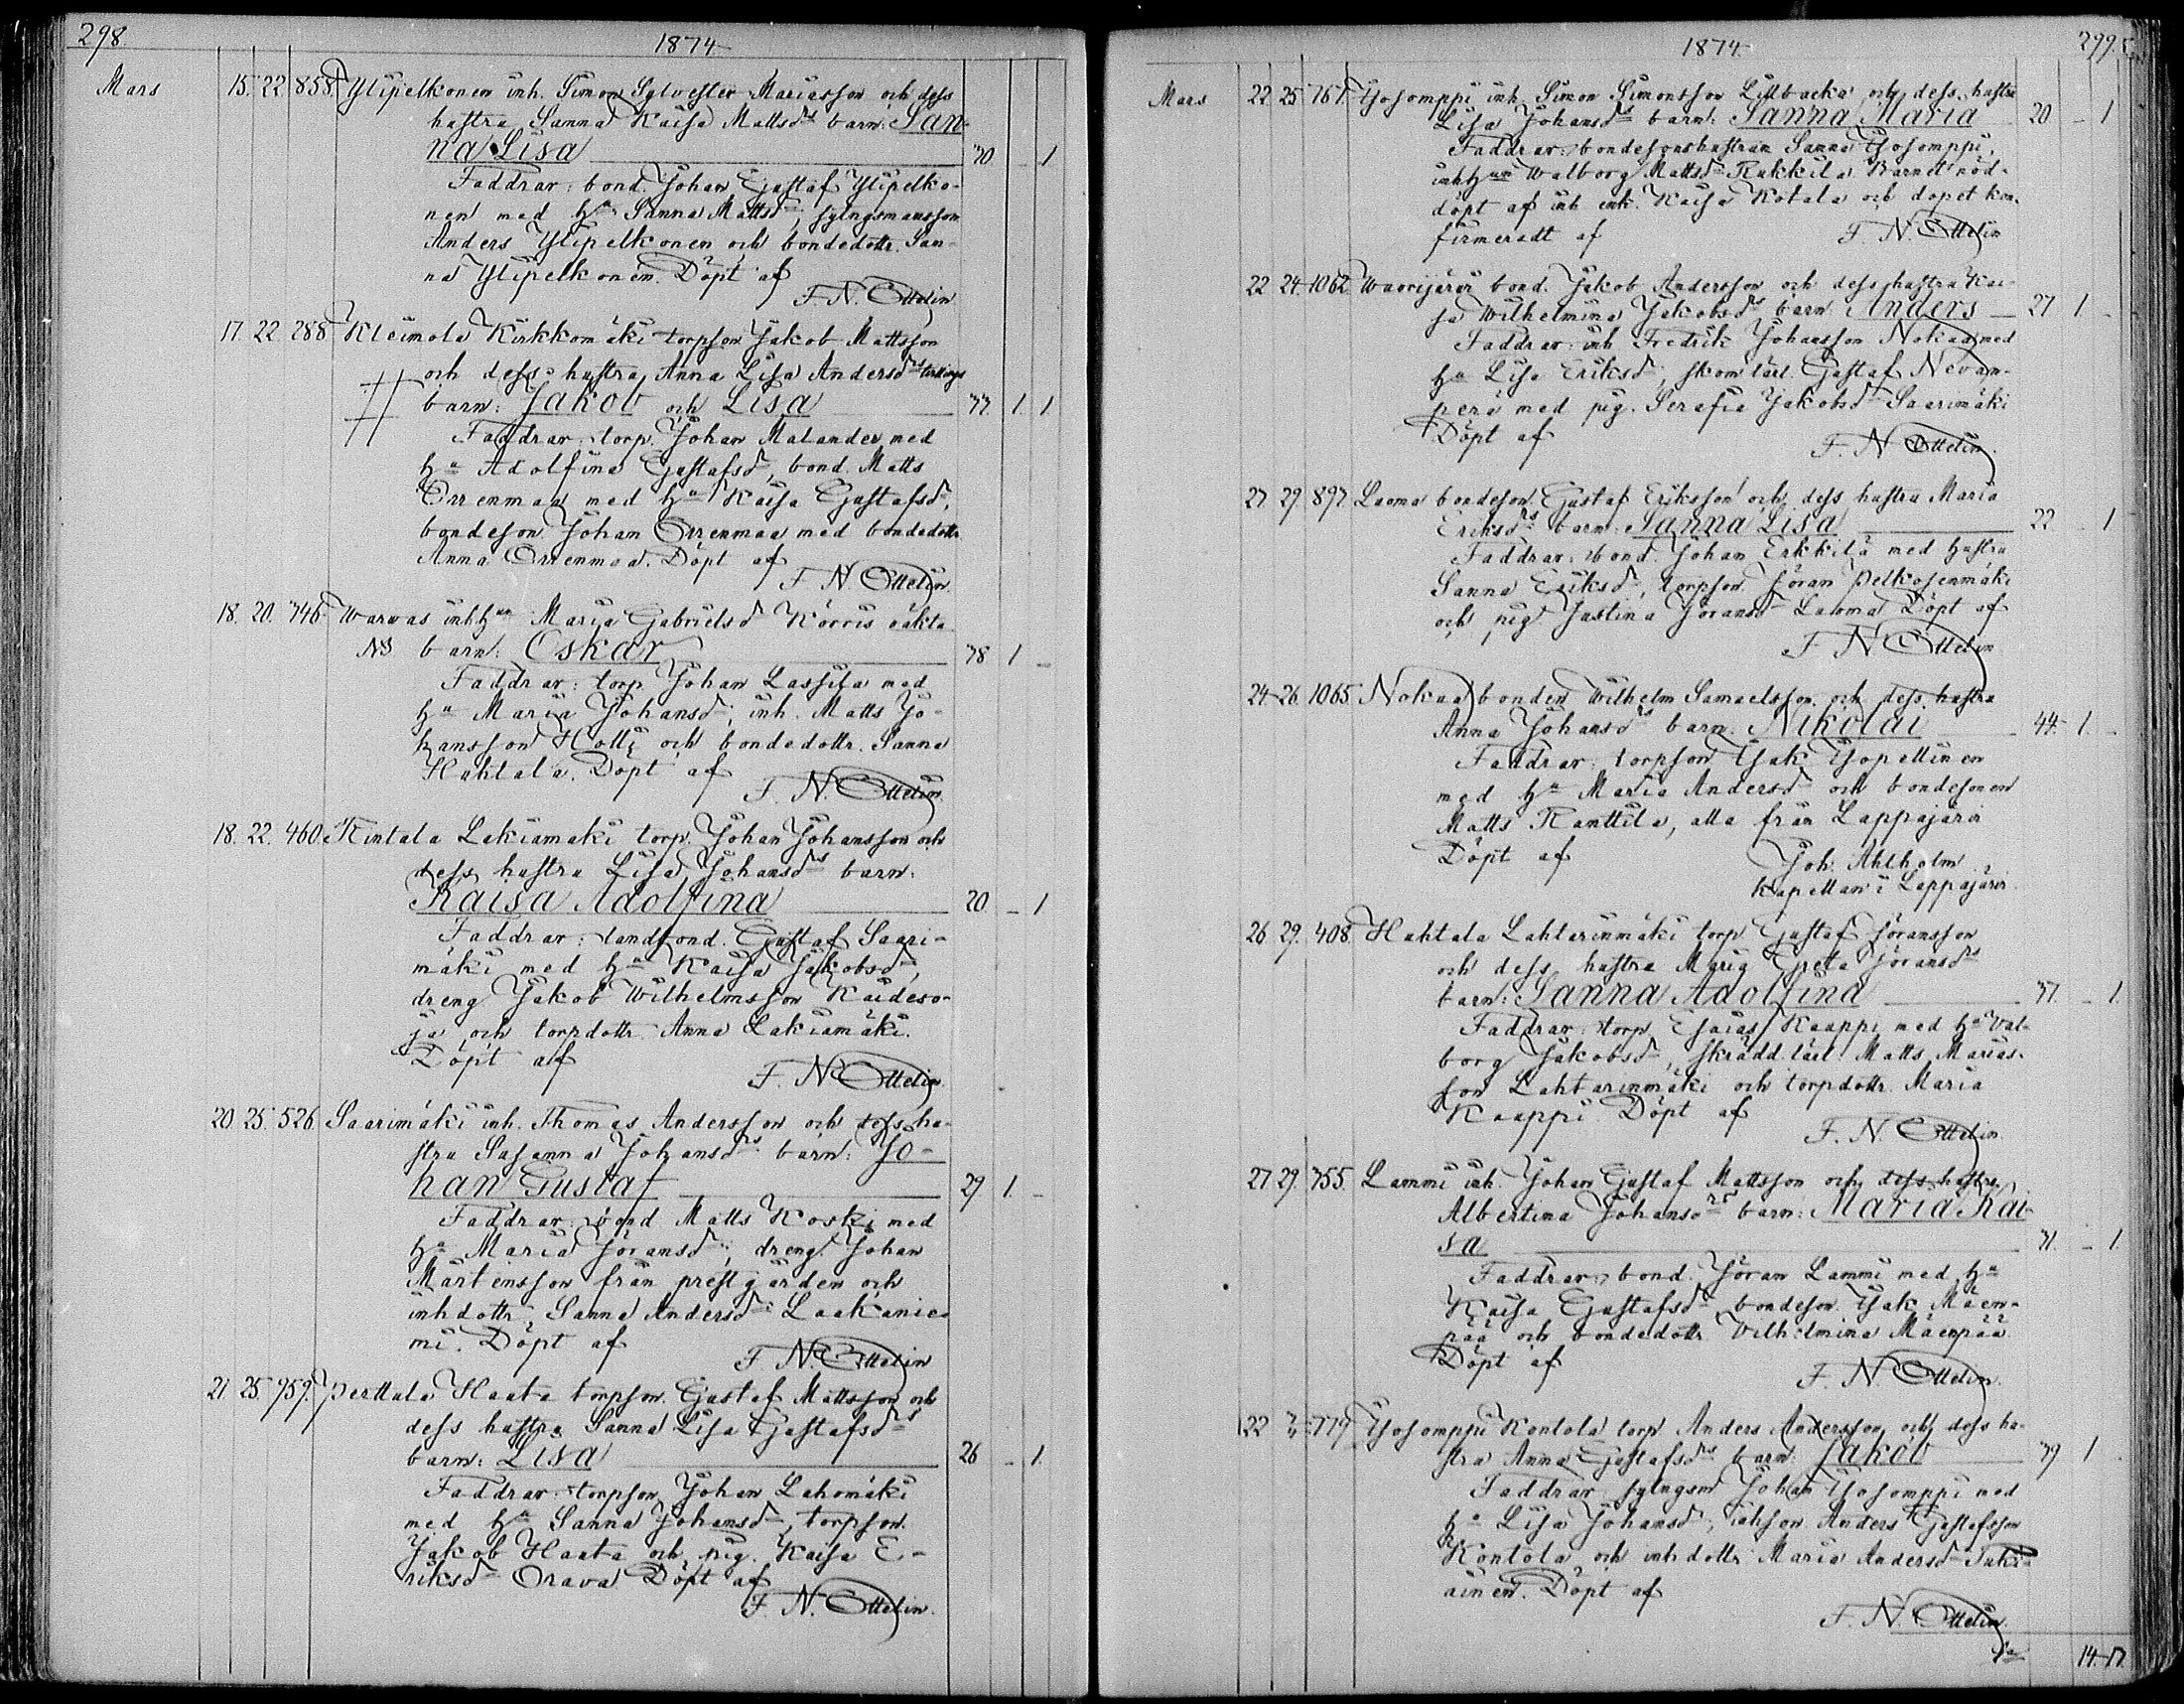 298.
1874
Mars 15. 22 858. Ylipelkonen inh. Simon Sylvester Mariasson och dess
hustra Sanna Kaisa Mattsdrs barn: San-
na Lisa 30 – 1
Faddrar: bond. Johan Gustaf Ylipelko-
nen med hu Sanna Mattsdr, sylngsmansson
Anders Ylipelkonen och bondedottr. San-
na Ylipelkonen. Döpt af
F. N. Ottelin
17. 22. 288 Kleimola Kirkkomäki torpson Jakob Mattsson
och dess hustra Anna Lisa Andersdrs tvillings
barn: Jakob och Lisa 37. 1. 1
Faddrar: torp. Johan Malander med
hu Adolfina Gustafsdr, bond. Matts
Orrenmaa med hu Kaisa Gustafsdr,
bondeson Johan Orrenmaa med bondedottr
Anna Orrenmaa. Döpt af
F. N. Ottelin
18. 20. 746. Warwas inhhun Maria Gabrielsdr Körris oäkta
NB barn: Oskar 38 1 –
Faddrar: torp Johan Lassila med
hu Maria Johansdr, inh. Matts Jo-
hansson Holli och bondedottr. Sanna
Huhtala. Döpt af
F. N. Ottelin
18. 22. 460. Rintala Lakiamäki torp. Johan Johansson och
dess hustra Lisa Johansdrs barn:
Kaisa Adolfina 20. – 1
Faddrar: landbond. Gustaf Saari-
mäki med hu Kaisa Jakobsdr,
dreng Jakob Wilhelmsson Kaideso-
ja och torpdottr Anna Lakiamäki.
Döpt af
F. N Ottelin
20. 25. 526 Saarimäki inh. Thomas Andersson och dess hu-
stra Susanna Johansdrs barn: Jo-
han Gustaf 29. 1. –
Faddrar: bond. Matts Koski med
hu Maria Göransdr, dreng Johan
Mårtensson från prestgården och
inhdottr, Sanna Andersdr Laakanie-
mi. Döpt af
F. N. Ottelin
21. 25. 959. Perttula Haata torpson. Gustaf Mattsson och
dess hustra Sanna Lisa Gustafsdrs
barn: Lisa 26 – 1.
Faddrar: torpson Johan Lahomäki
med hu Sanna Johansdr, torpson.
Jakob Haata och pig. Kaisa E-
riksdr Orava Döpt af
F. N. Ottelin.
1874
299.
Mars 22 25. 767. Yosomppi inh Simon Simonsson Lillbacka och dess hustra
Lisa Johansdrs barn: Sanna Maria 20. – 1
Faddrar: bondesonshustran Sanna Yosomppi,
inhhun Walborg Mattsdr Rukkila Barnet nöd-
döpt af inh enk. Kaisa Kotala och dopet kon-
firmeradt af F. N. Ottelin
22 24. 1062. Wuorijärvi bond. Jakob Andersson och dess hustra Kai-
sa Wilhelmina Jakobsdrs barn Anders 27 1 –
Faddrar: inh Fredrik Johansson Nokua med
hu Lisa Eriksdr, skom.lärl. Gustaf Nevan-
perä med pig. Serafia Jakobsdr Saarimäki
Döpt af
F. N Ottelin.
27 29. 897. Luoma bondeson Gustaf Eriksson och dess hustra Maria
Eriksdrs barn: Sanna Lisa 22 – 1
Faddrar: bond. Johan Erkkilä med hustra
Sanna Eriksdr, torpson Göran Pelkosenmäki
och pig Justina Göransdr Luoma Döpt af
F. N Ottelin
24 26. 1065. Nokua bonden Wilhelm Samuelsson och dess hustra
Anna Johansdrs barn: Nikolai 44. 1. –
Faddrar: torpson Isak Isopellinen
med hu Maria Andersdr och bondesonen
Matts Ranttila, alla från Lappajärvi
Döpt af Joh. Ahlholm
kapellan i Lappajärvi.
26 29. 408. Huhtala Lahtarinmäki torp Gustaf Göransson
och dess hustra Maria Greta Göransdrs
barn: Sanna Adolfina 37. – 1.
Faddrar: torp Esaias Kaappi med hu Val-
borg Jakobsdr, skrädd.lärl Matts Marias-
son Lahtarinmäki och torpdottr. Maria
Kaappi Döpt af
F. N. Ottelin.
27. 29. 355. Lammi inh. Johan Gustaf Mattsson och dess hustra
Albertina Johansdrs barn: Maria Kai-
sa 31. – 1.
Faddrar: bond. Göran Lammi med hu
Kaisa Gustafsdr, bondeson Isak Mäen-
pää och bondedottr Vilhelmina Mäenpää
Döpt af
F. N. Ottelin.
22 779 Yosomppi Kontola torp Anders Andersson och dess hu-
stra Anna Gustafsdrs barn: Jakob 39 1 .
Faddrar sylngsm Johan Yosomppi med
hu Lisa Johansdr, inhson Anders Gustafsson
Kontola och inhdottr Maria Andersdr Tuki-
ainen. Döpt af
F. N. Ottelin.
14. 17.